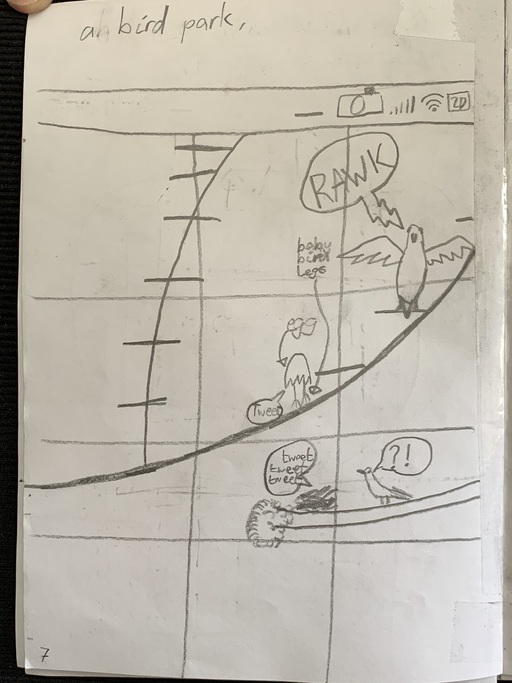 a bird park.
20
RAWK
baby
bird
legs
egg
Tweet
tweet
tweet
tweet
?!
7